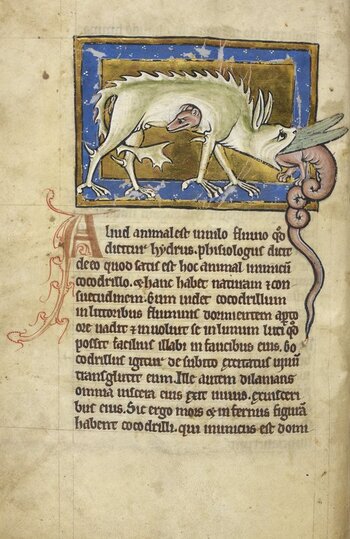 Aliud animal est in nilo flumine qđ
dicitur hydrus. phisiologus dicit
de eo quod satis est hoc animal inimicũ
cocodrillo. & hanc habet naturam & con
suetudinem. Cum uidet cocodrillum
in littoribus fluminis dormientem aꝑto
ore uadit & inuoluit se in lutum luti qđ
posset facilius illabi in faucibus eius. Co
codrillus igitur de subito excitatus uiuũ
transglutit eum. Ille autem dilanians
omnia uiscera eius exit uiuus. ex uisceri
bus eius. Sic ergo mors & infernus figurã
habent cocodrilli. qui inimicus est domi